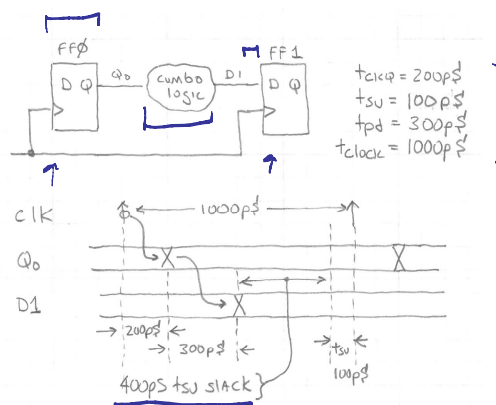 FF0
FF1
D Q
Q0
cumbo
logic
D1
D Q
tclkQ = 200ps
tsu = 100ps
tpd = 300ps
tclock = 1000ps
clk
1000ps
Q0
D1
200ps
300ps
tsu
100ps
400ps tsu slack